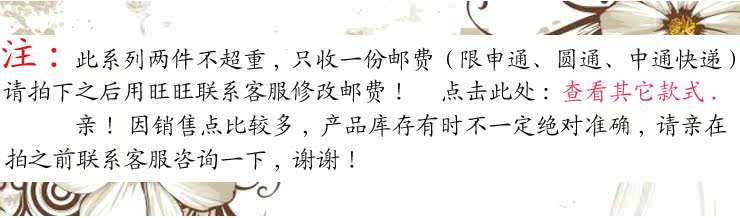 注：此系列两件不超重，只收一份邮费（限申通、圆通、中通快递）
请拍下之后用旺旺联系客服修改邮费！ 点击此处：查看其它款式．
亲！因销售点比较多，产品库存有时不一定绝对准确，请亲在
拍之前联系客服咨询一下，谢谢！